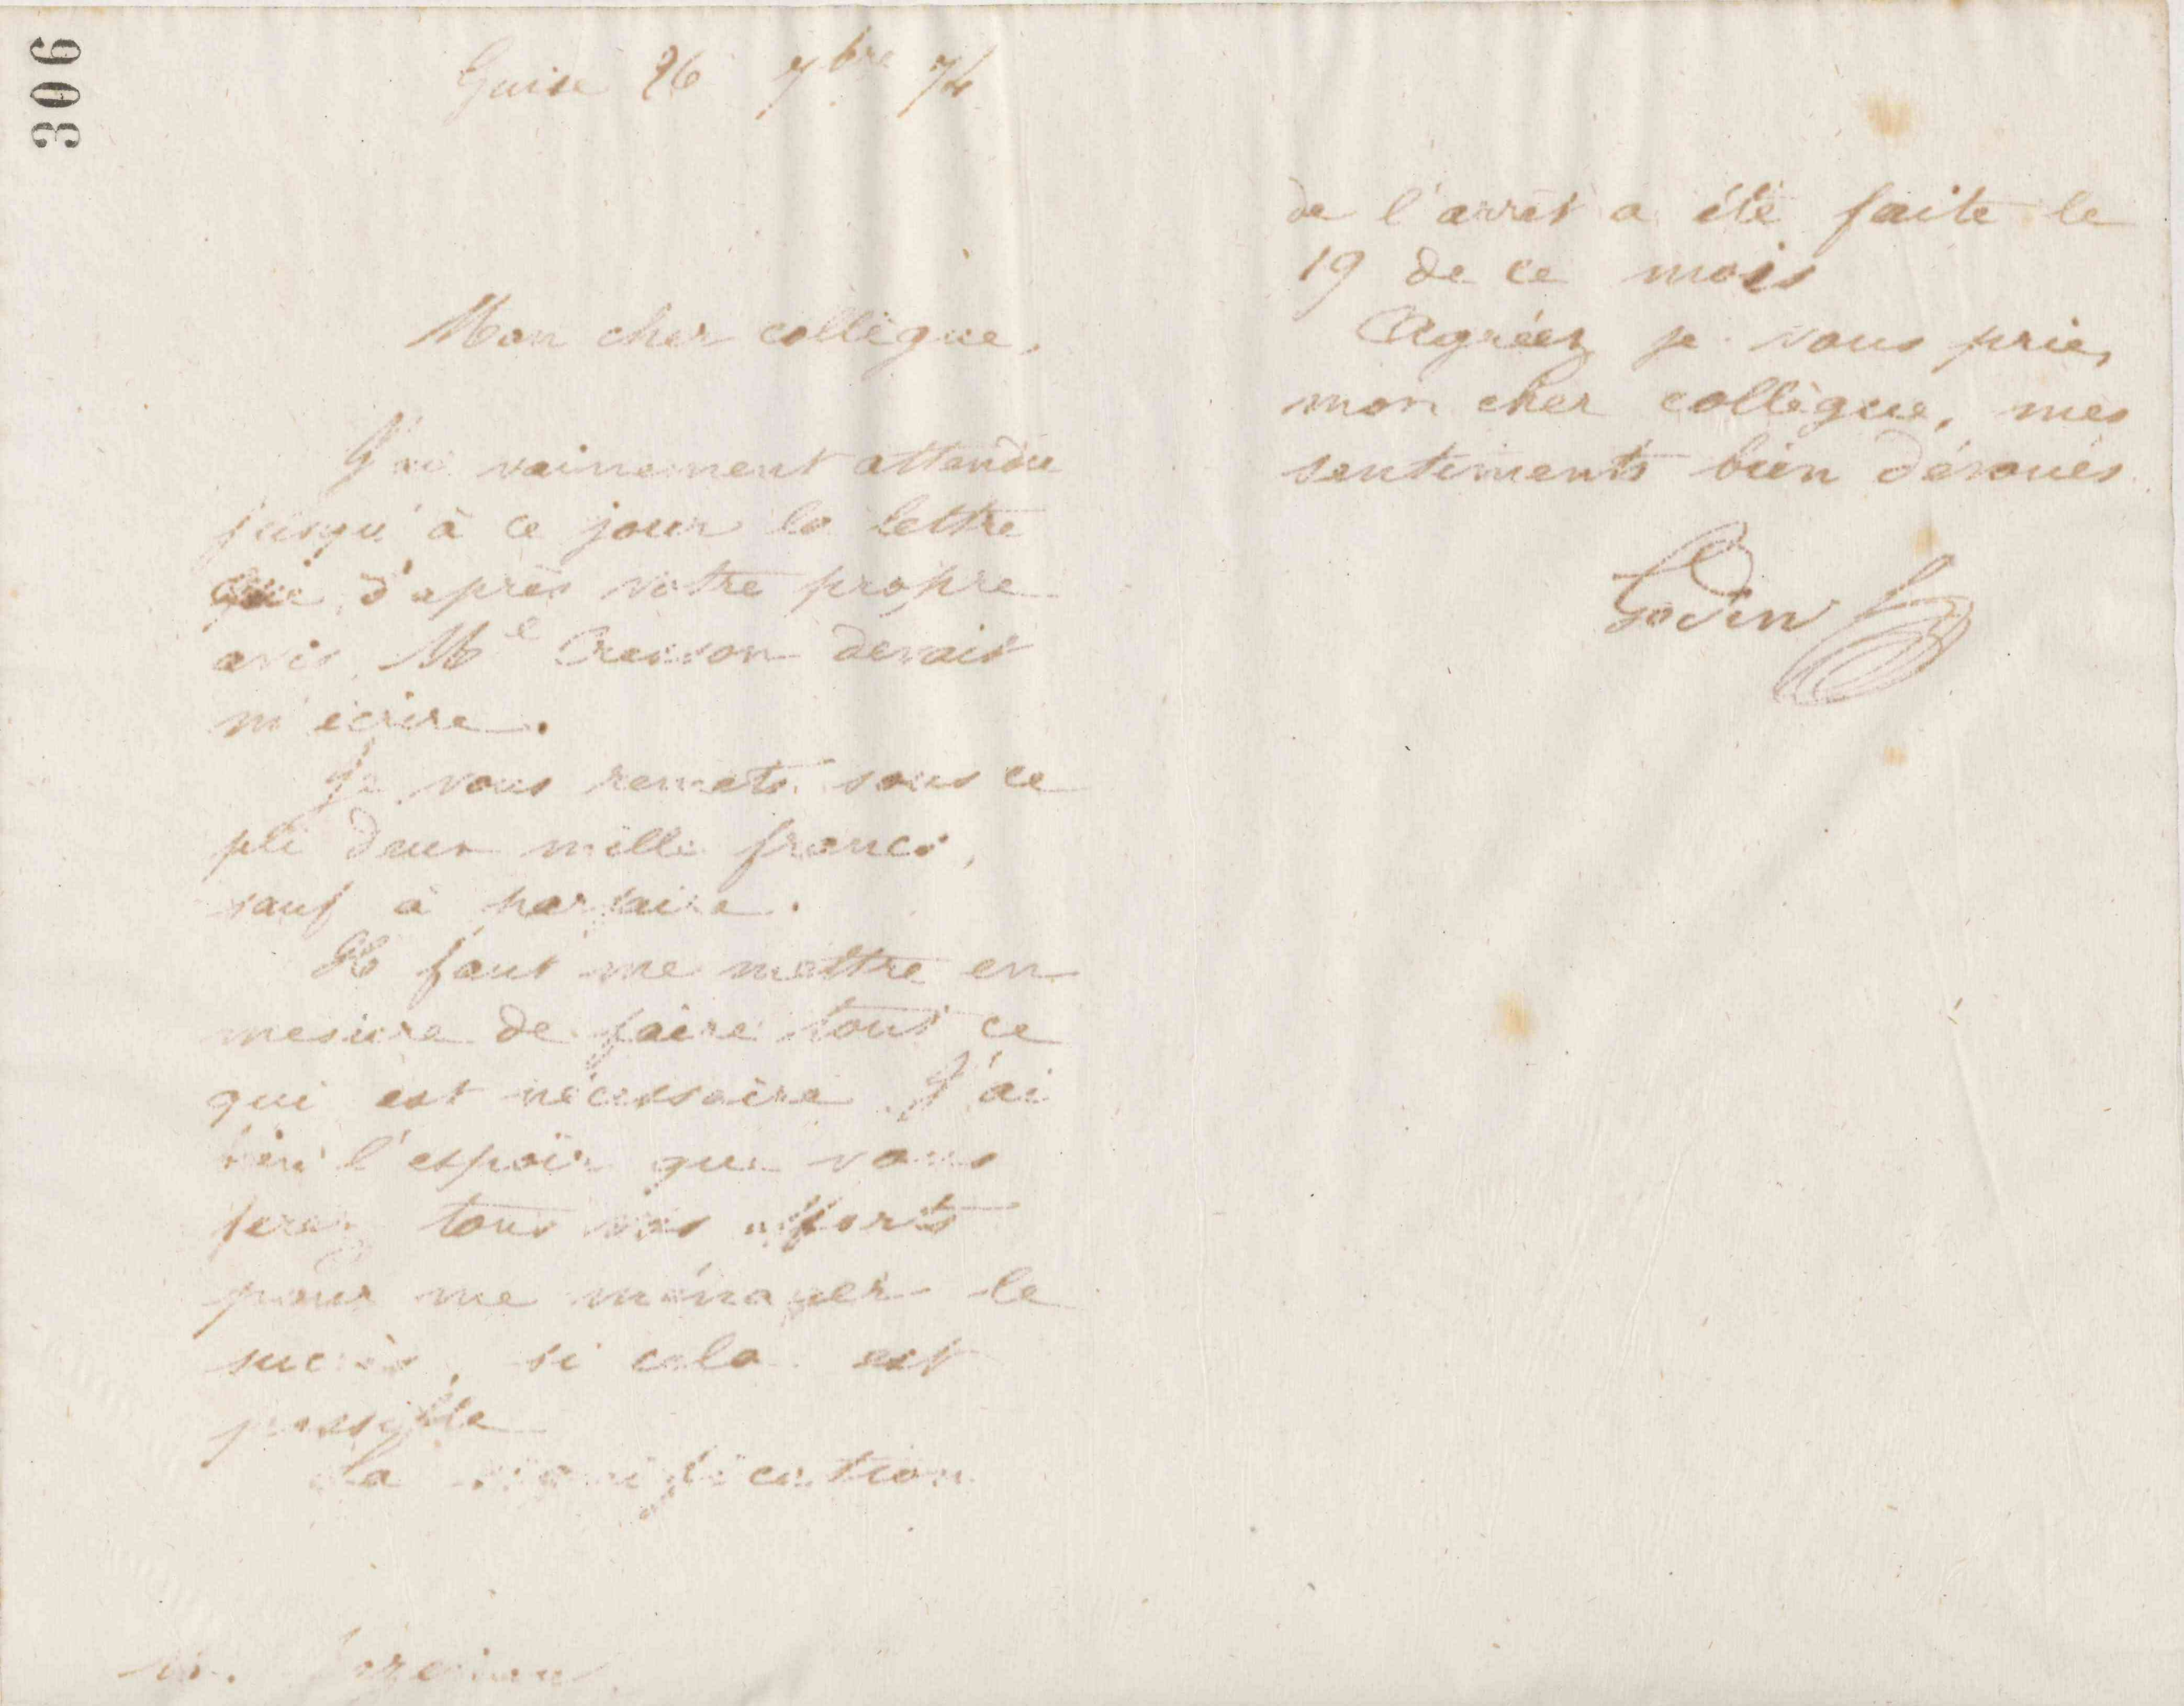 306
Guise 26 7bre 74
Mon cher collègue,
J'ai vainement attendu
jusqu'à ce jour la lettre
que, d'après votre propre
avis, Me Cresson devait
m'écrire.
Je vous remets sous ce
pli deux mille francs,
sauf à parfaire.
Il faut me mettre en
mesure de faire tout ce
qui est nécessaire J'ai
l'espoir que vous
ferez tous vos efforts
pour me ménager le
succès, si cela est
possible
La signification
M.
de l'arrêt a été faite le
19 de ce mois
Agréez je vous prie,
mon cher collègue, mes
sentiments bien dévoués
Godin